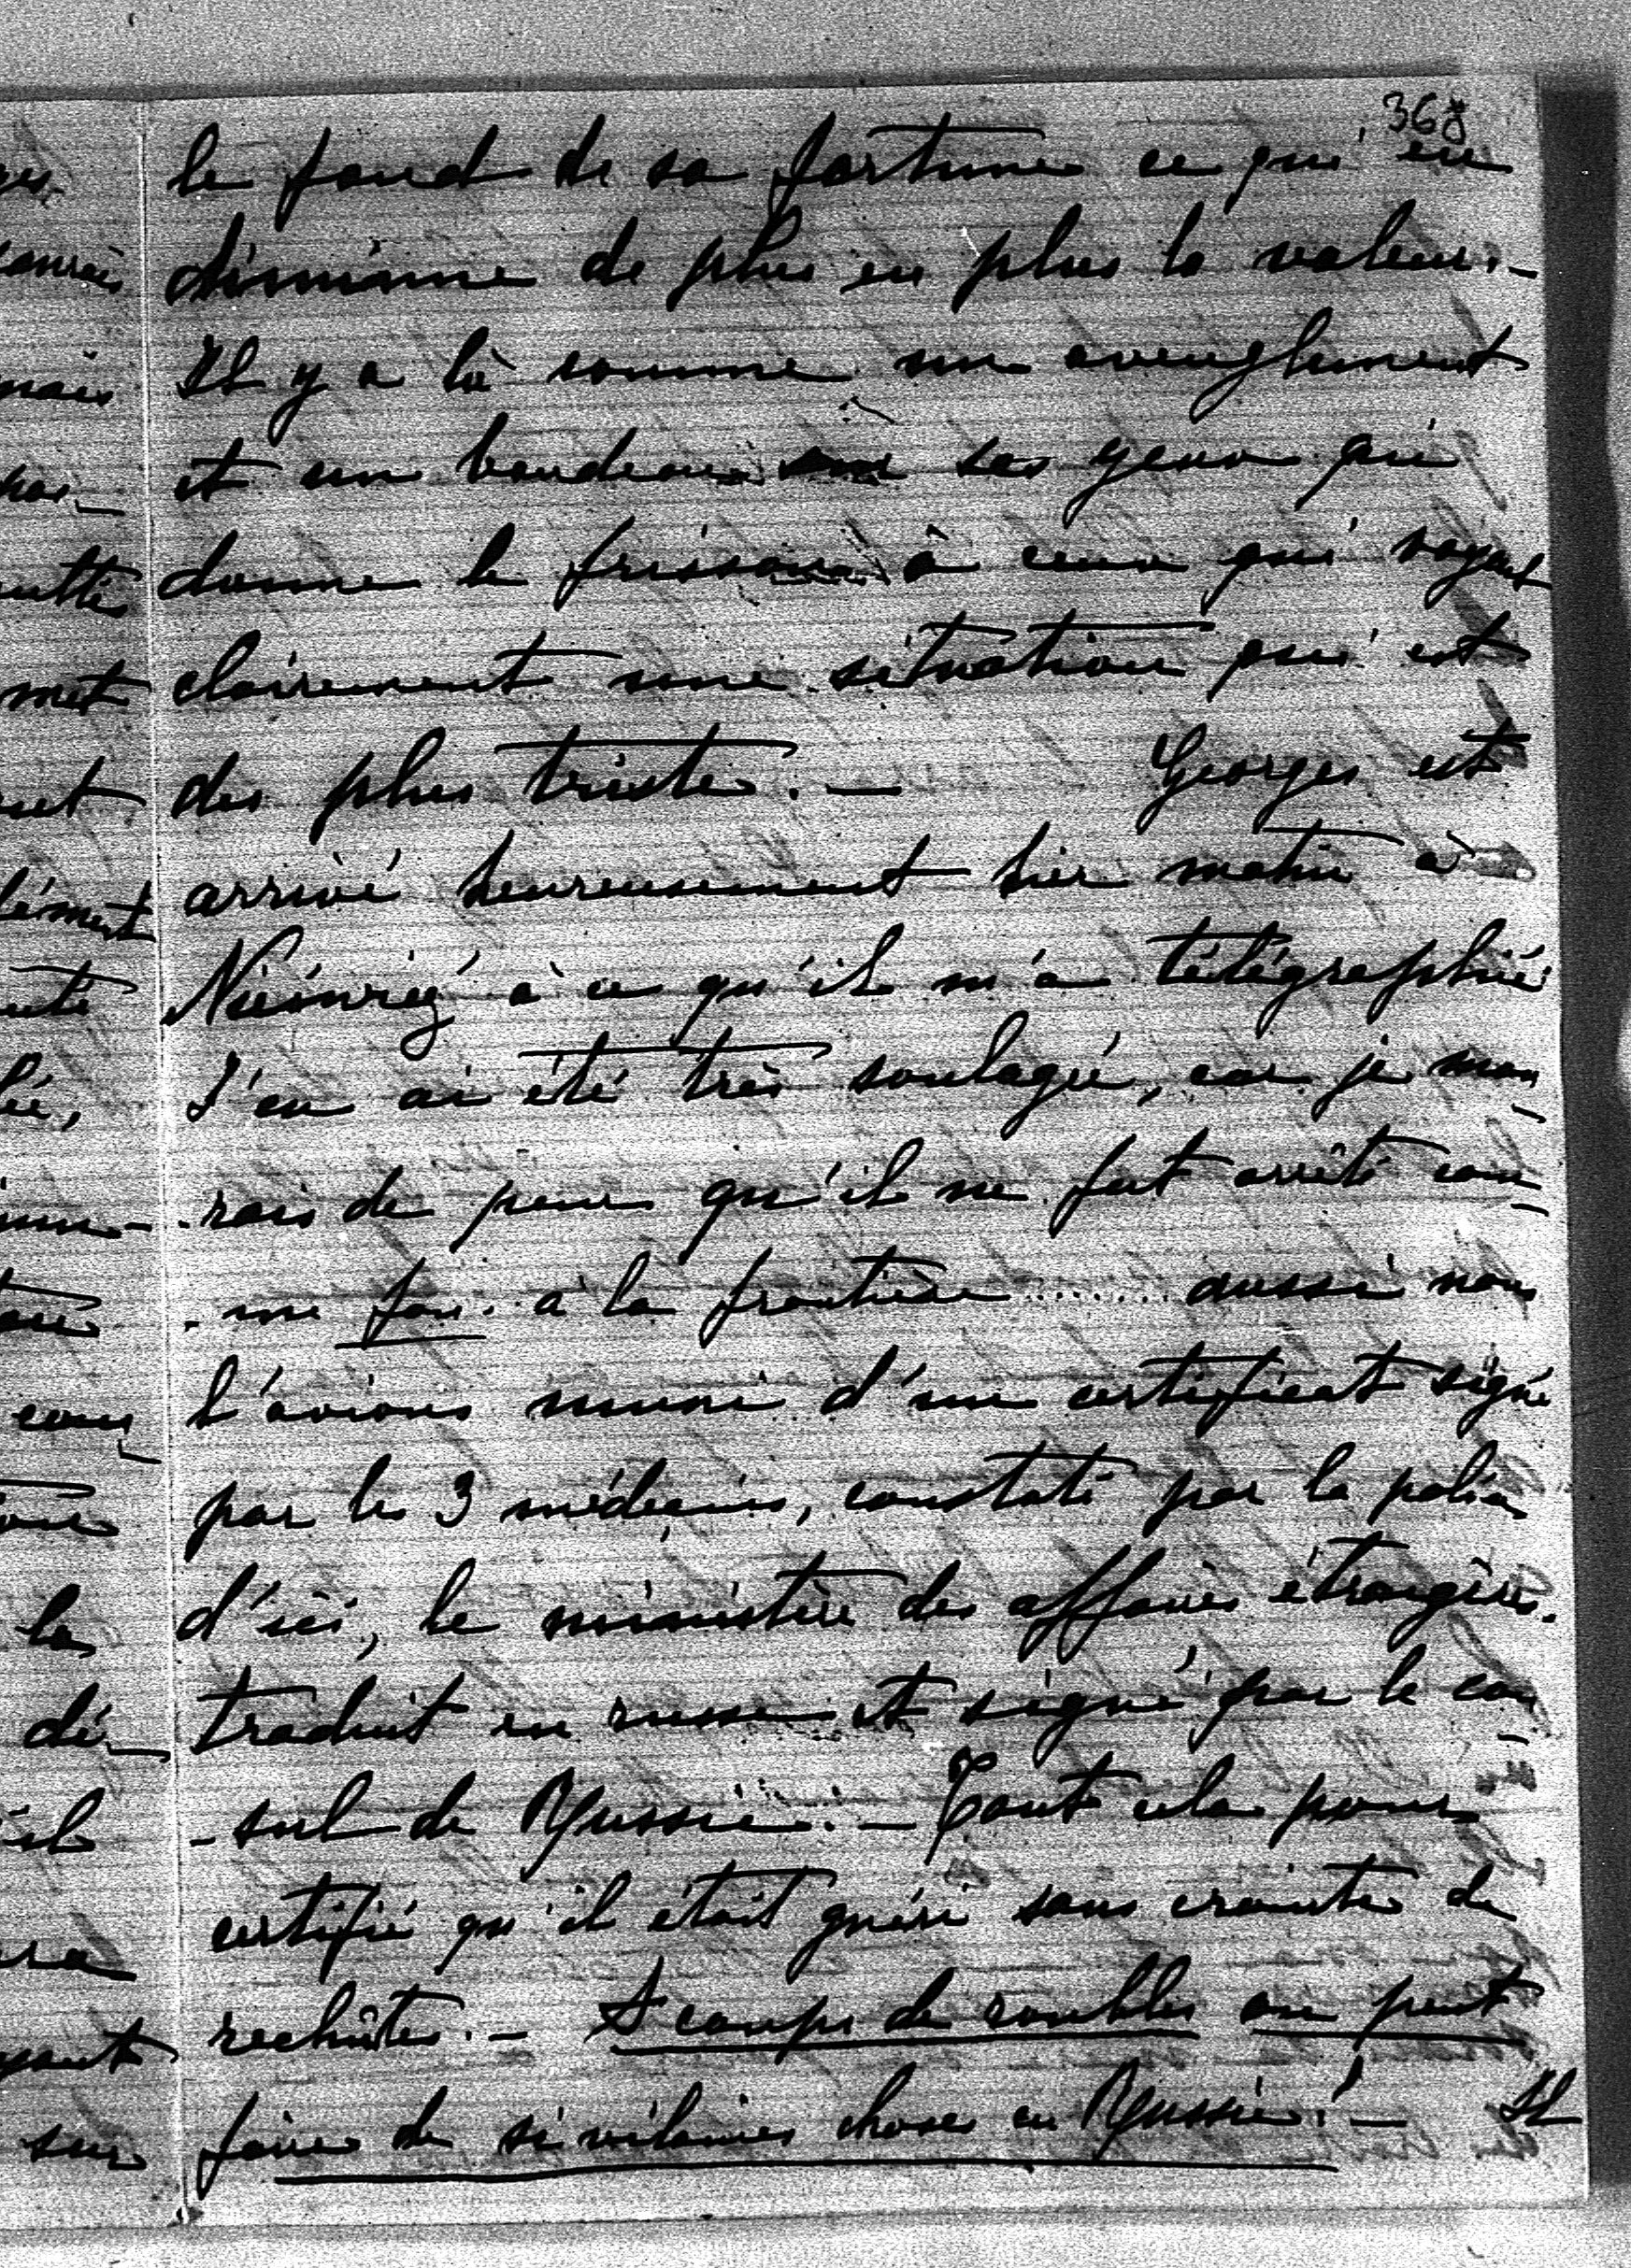 368
le fond de sa fortune ce qui en
diminue de plus en plus la valeur.-
Il y a là comme un aveuglement
et un bandeau sur ses yeux qui
donne le frisson à ceux qui voyent
clairement une situation qui est
des plus triste. — Georges est
arrivé heureusement hier matin à
à ce qu'il m'a télégraphié
J'en ai été très soulagé, car je mou-
-rais de peur qu'il ne fut arrêté com-
-me fou à la frontière ........ aussi nous
l'avions muni d'un certificat signé
par les 3 médecins, constaté par la police
d'ici, le ministère des affaires étrangères.
traduit en russe et signé par le con-
-sul de Russie. — Tout cela pour
certifié qu'il était guéri sans crainte de
rechûte. — A coups de roubles on peut
faire de si vilaines choses en Russie! — Il